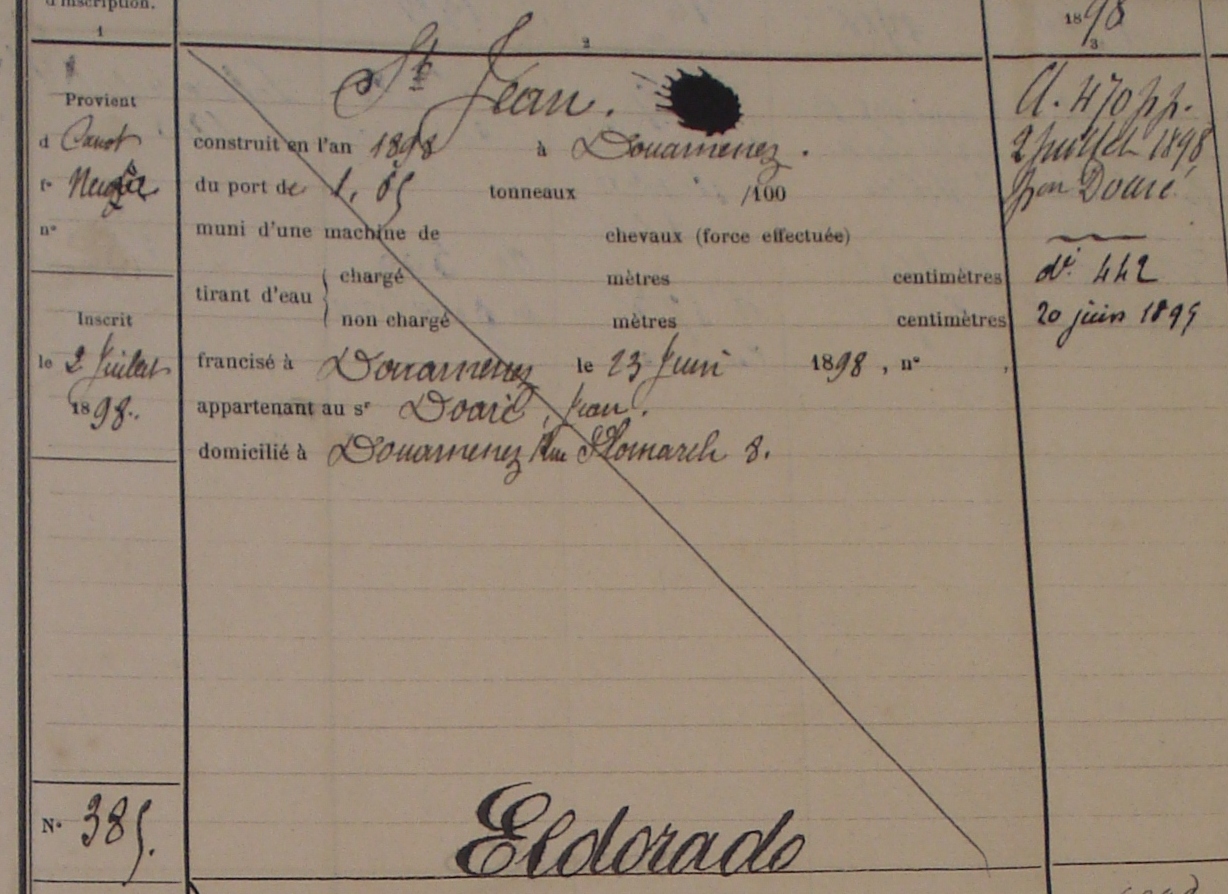 d'inscription.
1
2
1898
3
St Jean.
Provient
d Canot
fe Neuf
n°
construit en l'an 1898 à Douarnenez.
du port de 1,05 tonneaux /100
muni d'une machine de chevaux (force effectuée)
tirant d'eau { chargé mètres centimètres
non chargé mètres centimètres
Inscrit
le 2 Juillet
1898.
francisé à Douarnenez le 23 Juin 1898, n° ,
appartenant au sr Doaré, Jean.
domicilié à Douarnenez Rue Plomarch 8.
A. 470 pp.
2 Juillet 1898,
pon Doaré
dt 442
20 juin 1895
N° 385.
Eldorado